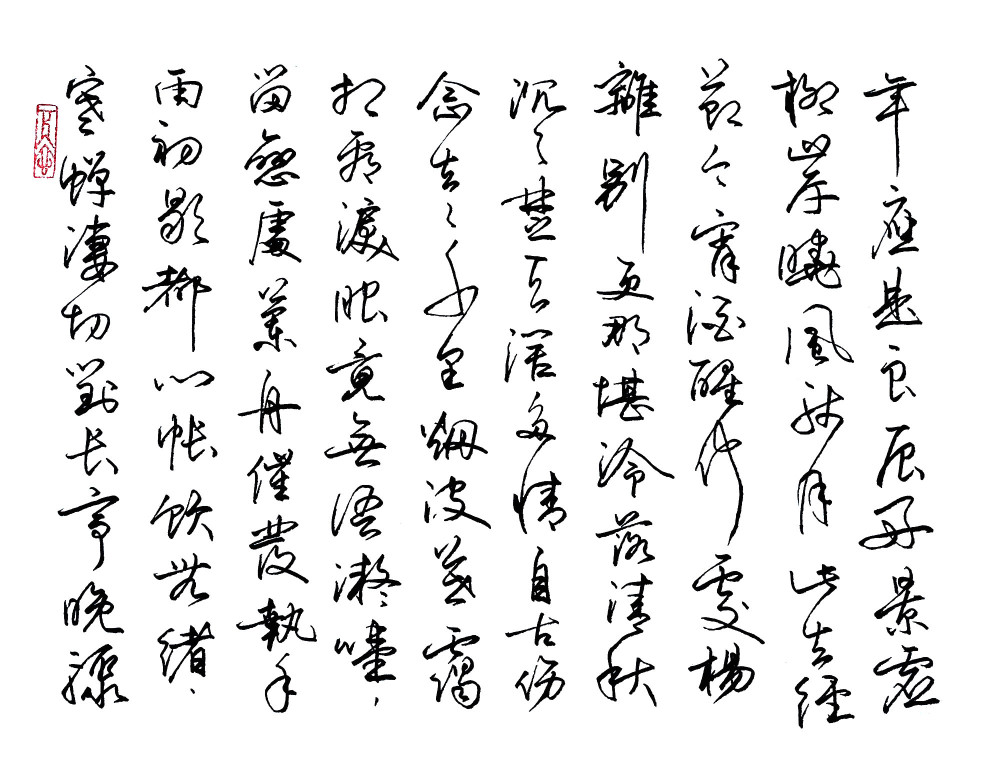 寒蟬淒切對长亭晚驟
雨初歇都门帳飲無緒
留戀處蘭舟催發執手
相看淚眼竟無語凝噎
念去々千里烟波暮靄
沉々楚天闊多情自古伤
離别更那堪冷落清秋
節今宵酒醒何處楊
柳岸曉風殘月此去經
年應是良辰好景虚